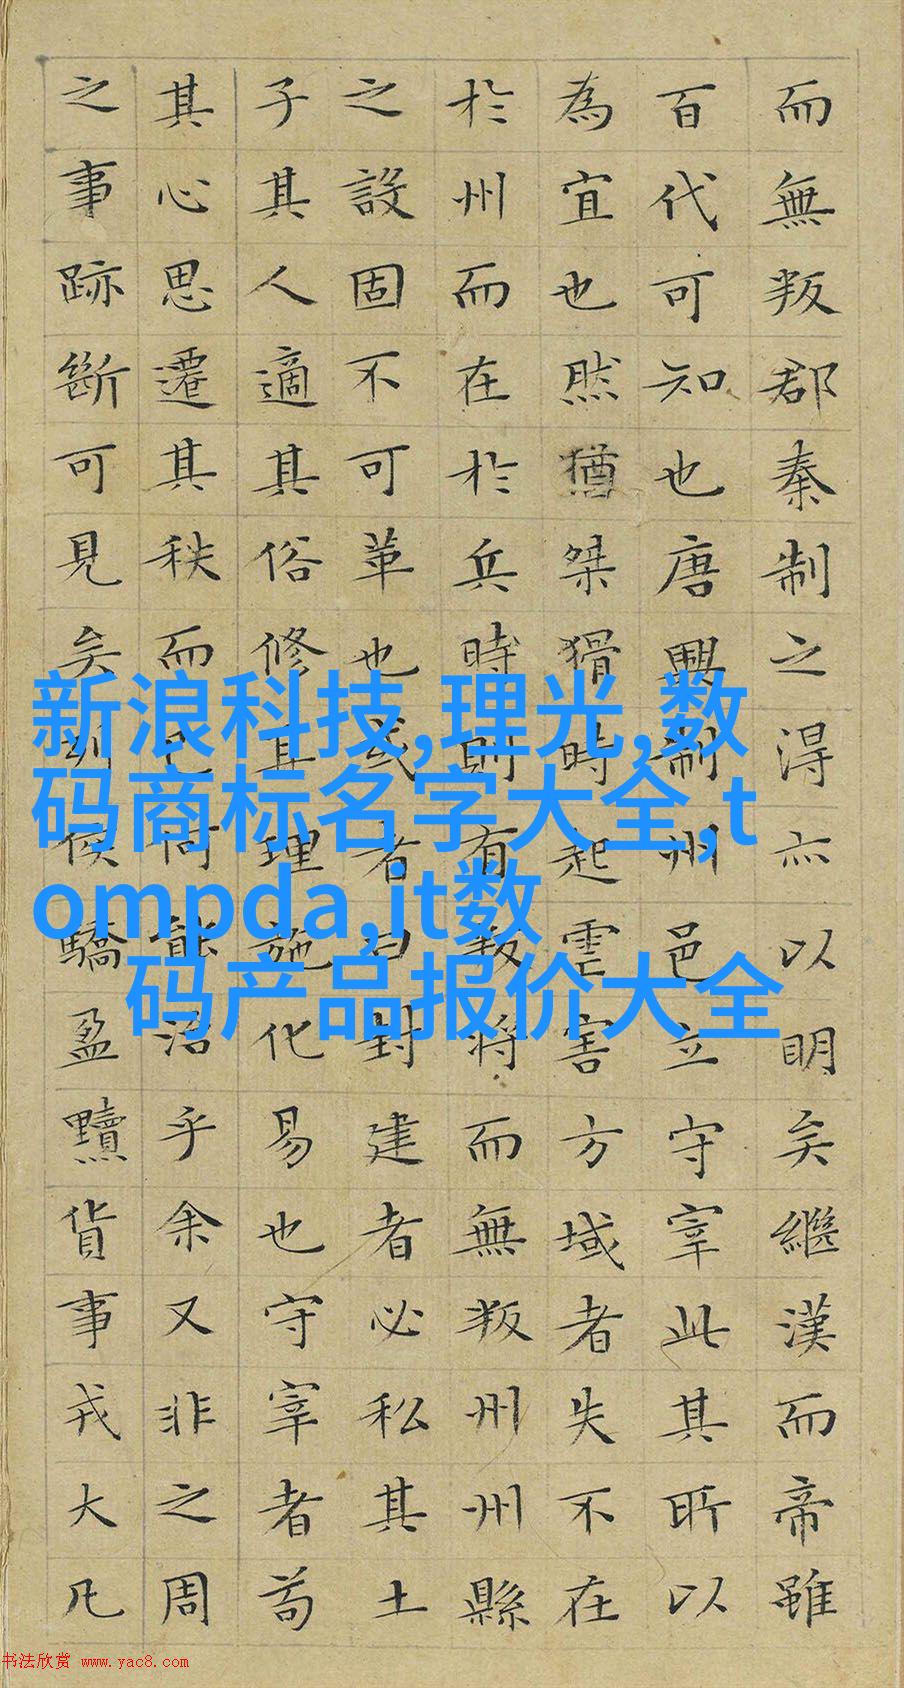 而無叛郡秦制之淂亦以明矣繼漢而帝雖
百代可知也唐興制州邑立守宰此其所以
為宜也然猶桀猾時起虐害方域者失不在
於州而在於兵時則有叛將而無叛州州縣
之設固不可革也或者曰封建者必私其土
子其人適其俗修其理施化易也守宰者苟
其心思遷其秩而已何能治乎余又非之周
之事跡斷可見矣列侯驕盈黷貨事戎大凡
新浪科技,理光,数
码商标名字大全,t
ompda,it数
码产品报价大全
书法欣赏 www.yac8.com